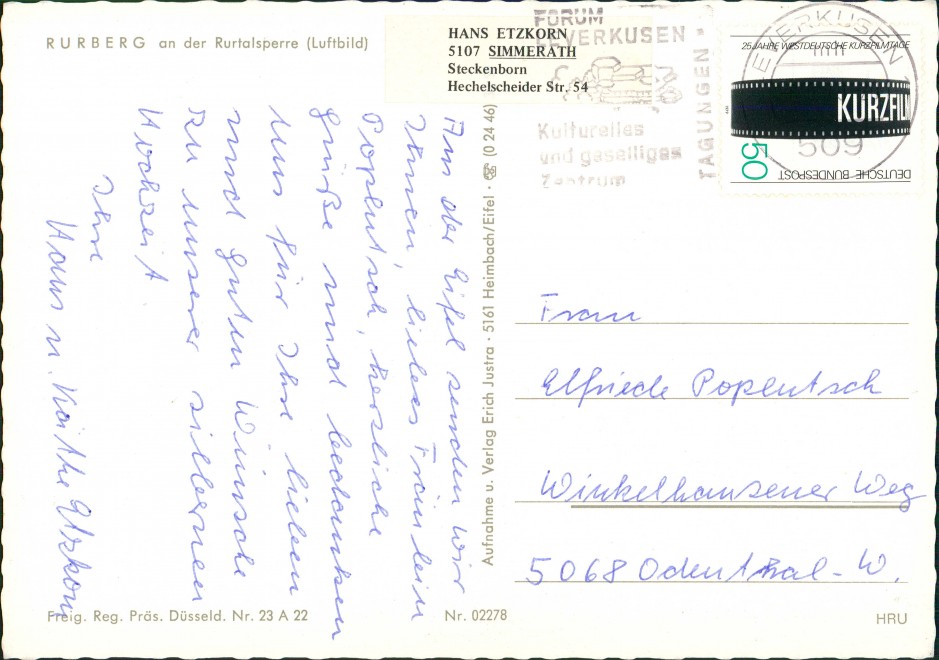 RURBERG an der Rurtalsperre (Luftbild)
HANS ETZKORN
5107 SIMMERATH
Steckenborn
Hechelscheider Str. 54
FORUM
LEVERKUSEN
TAGUNGEN
Kulturelles
und geselliges
Zentrum
LEVERKUSEN 1
509
25 JAHRE WESTDEUTSCHE KURZFILMTAGE
KURZFILM
50
DEUTSCHE BUNDESPOST
Aus der Eifel senden wir
Ihnen, liebes Fräulein
Poplutsch, herzliche
Grüße und bedanken
uns für Ihre lieben
und guten Wünsche
zu unserer silbernen
Hochzeit
Ihre
Hans u. Käthe Etzkorn
Aufnahme u. Verlag Erich Justra · 5161 Heimbach/Eifel · ☎ (0 24 46)
Frau
Elfriede Poplutsch
Winkelhausener Weg
5068 Odenthal-W.
Freig. Reg. Präs. Düsseld. Nr. 23 A 22
Nr. 02278
HRU